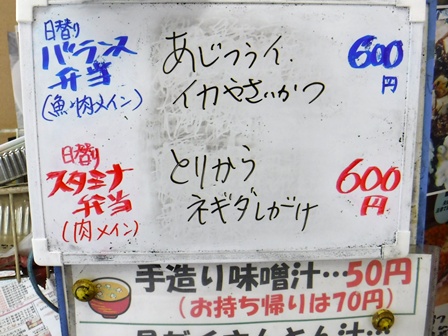 日替り
バランス
弁当
(魚・肉メイン)
あじフライ.
イカやさいかつ
600
円
日替り
スタミナ
弁当
(肉メイン)
とりから
ネギダレがけ
600
円
手造り味噌汁…50円
(お持ち帰りは70円)